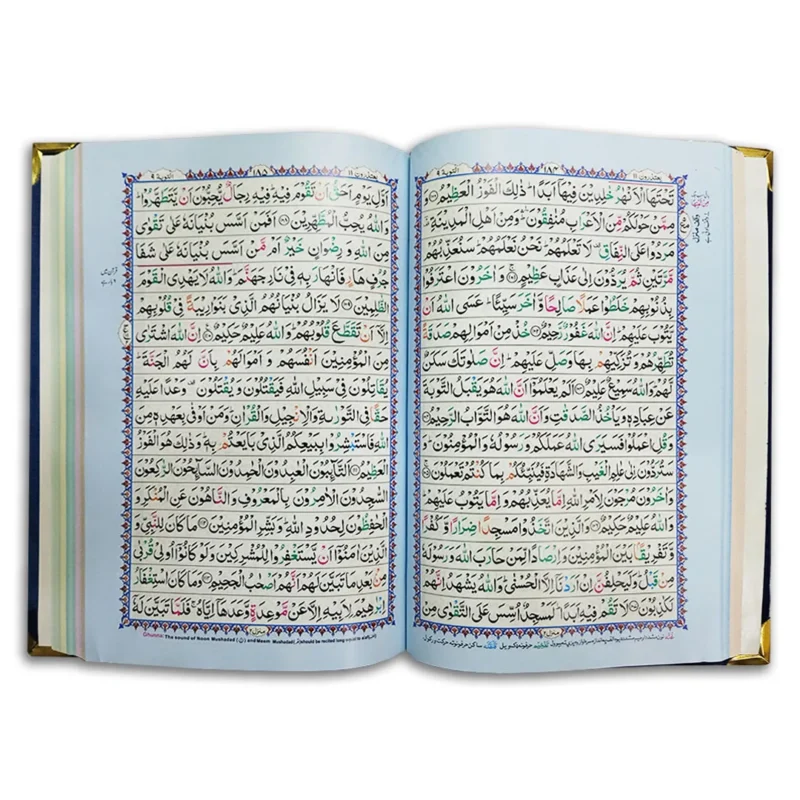 یعتذرون ۱۱
۱۸۴
التوبة ۹
تَحْتَهَا الْاَنْهٰرُ خٰلِدِیْنَ فِیْهَاۤ اَبَدًا ؕ ذٰلِكَ الْفَوْزُ الْعَظِیْمُ ۝۱۰۰
مِمَّنْ حَوْلَكُمْ مِّنَ الْاَعْرَابِ مُنٰفِقُوْنَ ۛؕ وَمِنْ اَهْلِ الْمَدِیْنَةِ ۛؔ
مَرَدُوْا عَلَى النِّفَاقِ ۫ لَا تَعْلَمُهُمْ ؕ نَحْنُ نَعْلَمُهُمْ ؕ سَنُعَذِّبُهُمْ
مَّرَّتَیْنِ ثُمَّ یُرَدُّوْنَ اِلٰى عَذَابٍ عَظِیْمٍ ۝۱۰۱ وَاٰخَرُوْنَ اعْتَرَفُوْا
بِذُنُوْبِهِمْ خَلَطُوْا عَمَلًا صَالِحًا وَّاٰخَرَ سَیِّئًا ؕ عَسَى اللّٰهُ اَنْ
یَّتُوْبَ عَلَیْهِمْ ؕ اِنَّ اللّٰهَ غَفُوْرٌ رَّحِیْمٌ ۝۱۰۲ خُذْ مِنْ اَمْوَالِهِمْ صَدَقَةً
تُطَهِّرُهُمْ وَتُزَكِّیْهِمْ بِهَا وَصَلِّ عَلَیْهِمْ ؕ اِنَّ صَلٰوتَكَ سَكَنٌ
لَّهُمْ ؕ وَاللّٰهُ سَمِیْعٌ عَلِیْمٌ ۝۱۰۳ اَلَمْ یَعْلَمُوْۤا اَنَّ اللّٰهَ هُوَ یَقْبَلُ التَّوْبَةَ
عَنْ عِبَادِهٖ وَیَاْخُذُ الصَّدَقٰتِ وَاَنَّ اللّٰهَ هُوَ التَّوَّابُ الرَّحِیْمُ ۝۱۰۴
وَقُلِ اعْمَلُوْا فَسَیَرَى اللّٰهُ عَمَلَكُمْ وَرَسُوْلُهٗ وَالْمُؤْمِنُوْنَ ؕ وَ
سَتُرَدُّوْنَ اِلٰى عٰلِمِ الْغَیْبِ وَالشَّهَادَةِ فَیُنَبِّئُكُمْ بِمَا كُنْتُمْ تَعْمَلُوْنَ ۝۱۰۵
وَاٰخَرُوْنَ مُرْجَوْنَ لِاَمْرِ اللّٰهِ اِمَّا یُعَذِّبُهُمْ وَاِمَّا یَتُوْبُ عَلَیْهِمْ ؕ
وَاللّٰهُ عَلِیْمٌ حَكِیْمٌ ۝۱۰۶ وَالَّذِیْنَ اتَّخَذُوْا مَسْجِدًا ضِرَارًا وَّكُفْرًا
وَّتَفْرِیْقًۢا بَیْنَ الْمُؤْمِنِیْنَ وَاِرْصَادًا لِّمَنْ حَارَبَ اللّٰهَ وَرَسُوْلَهٗ
مِنْ قَبْلُ ؕ وَلَیَحْلِفُنَّ اِنْ اَرَدْنَاۤ اِلَّا الْحُسْنٰى ؕ وَاللّٰهُ یَشْهَدُ اِنَّهُمْ
لَكٰذِبُوْنَ ۝۱۰۷ لَا تَقُمْ فِیْهِ اَبَدًا ؕ لَمَسْجِدٌ اُسِّسَ عَلَى التَّقْوٰى مِنْ
منزل ۲
یعتذرون ۱۱
۱۸۵
التوبة ۹
اَوَّلِ یَوْمٍ اَحَقُّ اَنْ تَقُوْمَ فِیْهِ ؕ فِیْهِ رِجَالٌ یُّحِبُّوْنَ اَنْ یَّتَطَهَّرُوْا ؕ
وَاللّٰهُ یُحِبُّ الْمُطَّهِّرِیْنَ ۝۱۰۸ اَفَمَنْ اَسَّسَ بُنْیَانَهٗ عَلٰى تَقْوٰى
مِنَ اللّٰهِ وَ رِضْوَانٍ خَیْرٌ اَمْ مَّنْ اَسَّسَ بُنْیَانَهٗ عَلٰى شَفَا
جُرُفٍ هَارٍ فَانْهَارَ بِهٖ فِیْ نَارِ جَهَنَّمَ ؕ وَاللّٰهُ لَا یَهْدِی الْقَوْمَ
الظّٰلِمِیْنَ ۝۱۰۹ لَا یَزَالُ بُنْیَانُهُمُ الَّذِیْ بَنَوْا رِیْبَةً فِیْ قُلُوْبِهِمْ
اِلَّاۤ اَنْ تَقَطَّعَ قُلُوْبُهُمْ ؕ وَاللّٰهُ عَلِیْمٌ حَكِیْمٌ ۝۱۱۰ اِنَّ اللّٰهَ اشْتَرٰى
مِنَ الْمُؤْمِنِیْنَ اَنْفُسَهُمْ وَ اَمْوَالَهُمْ بِاَنَّ لَهُمُ الْجَنَّةَ ؕ
یُقَاتِلُوْنَ فِیْ سَبِیْلِ اللّٰهِ فَیَقْتُلُوْنَ وَ یُقْتَلُوْنَ ۫ وَعْدًا عَلَیْهِ
حَقًّا فِی التَّوْرٰىةِ وَالْاِنْجِیْلِ وَالْقُرْاٰنِ ؕ وَمَنْ اَوْفٰى بِعَهْدِهٖ مِنَ
اللّٰهِ فَاسْتَبْشِرُوْا بِبَیْعِكُمُ الَّذِیْ بَایَعْتُمْ بِهٖ ؕ وَذٰلِكَ هُوَ الْفَوْزُ
الْعَظِیْمُ ۝۱۱۱ اَلتَّآئِبُوْنَ الْعٰبِدُوْنَ الْحٰمِدُوْنَ السَّآئِحُوْنَ الرّٰكِعُوْنَ
السّٰجِدُوْنَ الْاٰمِرُوْنَ بِالْمَعْرُوْفِ وَالنَّاهُوْنَ عَنِ الْمُنْكَرِ وَ
الْحٰفِظُوْنَ لِحُدُوْدِ اللّٰهِ ؕ وَبَشِّرِ الْمُؤْمِنِیْنَ ۝۱۱۲ مَا كَانَ لِلنَّبِیِّ وَ
الَّذِیْنَ اٰمَنُوْۤا اَنْ یَّسْتَغْفِرُوْا لِلْمُشْرِكِیْنَ وَلَوْ كَانُوْۤا اُولِیْ قُرْبٰى
مِنْۢ بَعْدِ مَا تَبَیَّنَ لَهُمْ اَنَّهُمْ اَصْحٰبُ الْجَحِیْمِ ۝۱۱۳ وَمَا كَانَ اسْتِغْفَارُ
اِبْرٰهِیْمَ لِاَبِیْهِ اِلَّا عَنْ مَّوْعِدَةٍ وَّعَدَهَاۤ اِیَّاهُ ۚ فَلَمَّا تَبَیَّنَ لَهٗۤ
منزل ۲
Ghunna: The sound of Noon Mushadad (نّ) and Meem Mushadad should be recited long